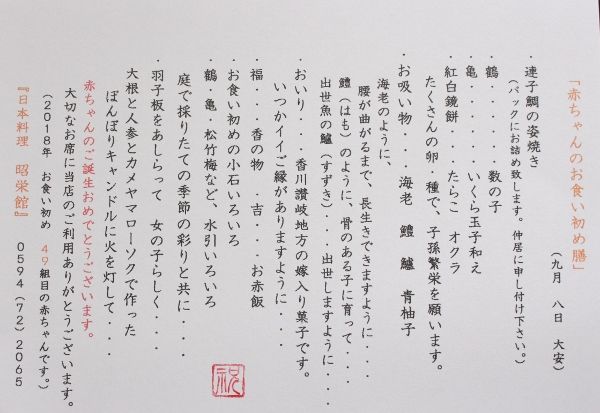 「赤ちゃんのお食い初め膳」
（九月　八日　大安）
・連子鯛の姿焼き
（パックにお詰め致します。仲居に申し付け下さい。）
・鶴・・・・・・数の子
・亀・・・・・・いくら玉子和え
・紅白鏡餅・・・・たらこ　オクラ
たくさんの卵・種で、子孫繁栄を願います。
・お吸い物・・・・海老　鱧　鱸　青柚子
海老のように、
腰が曲がるまで、長生きできますように・・・・
鱧（はも）のように、骨のある子に育って・・・・
出世魚の鱸（すずき）・・・出世しますように・・・・
・おいり・・・香川讃岐地方の嫁入り菓子です。
いつかイイご縁がありますように・・・・
・福・・・香の物　・吉・・・お赤飯
・お食い初めの小石いろいろ
・鶴・亀・松竹梅など、水引いろいろ
庭で採りたての季節の彩りと共に・・・・
・羽子板をあしらって　女の子らしく・・・・
大根と人参とカメヤマローソクで作った
ぼんぼりキャンドルに火を灯して・・・・
赤ちゃんのご誕生おめでとうございます。
大切なお席に当店のご利用ありがとうございます。
（２０１８年　お食い初め　４９組目の赤ちゃんです。）
『日本料理　昭栄館』　０５９４（７２）２０６５
祝